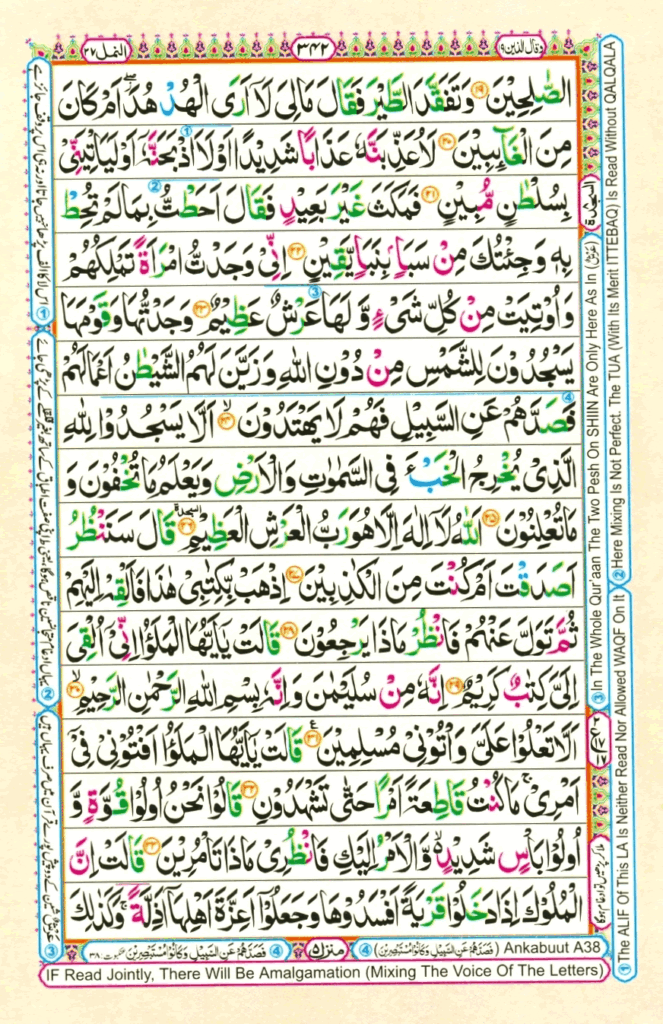 وقال الذين ۱۹
۳۴۲
النمل ۲۷
الصّٰلِحِيْنَ ۱۹ وَتَفَقَّدَ الطَّيْرَ فَقَالَ مَالِیَ لَاۤ اَرَی الْهُدْهُدَ ۖ اَمْ كَانَ
مِنَ الْغَآئِبِيْنَ ۲۰ لَاُعَذِّبَنَّهٗ عَذَابًا شَدِيْدًا اَوْ لَا۟اَذْبَحَنَّهٗۤ اَوْ لَيَاْتِيَنِّیْ
بِسُلْطٰنٍ مُّبِيْنٍ ۲۱ فَمَكَثَ غَيْرَ بَعِيْدٍ فَقَالَ اَحَطْتُّ بِمَا لَمْ تُحِطْ
بِهٖ وَجِئْتُكَ مِنْ سَبَاٍۭ بِنَبَاٍ يَّقِيْنٍ ۲۲ اِنِّیْ وَجَدْتُّ امْرَاَةً تَمْلِكُهُمْ
وَاُوْتِيَتْ مِنْ كُلِّ شَیْءٍ وَّلَهَا عَرْشٌ عَظِيْمٌ ۲۳ وَجَدْتُّهَا وَقَوْمَهَا
يَسْجُدُوْنَ لِلشَّمْسِ مِنْ دُوْنِ اللّٰهِ وَزَيَّنَ لَهُمُ الشَّيْطٰنُ اَعْمَالَهُمْ
فَصَدَّهُمْ عَنِ السَّبِيْلِ فَهُمْ لَا يَهْتَدُوْنَ ۲۴ اَلَّا يَسْجُدُوْا لِلّٰهِ
الَّذِیْ يُخْرِجُ الْخَبْءَ فِی السَّمٰوٰتِ وَالْاَرْضِ وَيَعْلَمُ مَا تُخْفُوْنَ وَ
مَا تُعْلِنُوْنَ ۲۵ اَللّٰهُ لَاۤ اِلٰهَ اِلَّا هُوَ رَبُّ الْعَرْشِ الْعَظِيْمِ ۲۶ قَالَ سَنَنْظُرُ
اَصَدَقْتَ اَمْ كُنْتَ مِنَ الْكٰذِبِيْنَ ۲۷ اِذْهَبْ بِّكِتٰبِیْ هٰذَا فَاَلْقِهْ اِلَيْهِمْ
ثُمَّ تَوَلَّ عَنْهُمْ فَانْظُرْ مَاذَا يَرْجِعُوْنَ ۲۸ قَالَتْ يٰۤاَيُّهَا الْمَلَؤُا اِنِّیْۤ اُلْقِیَ
اِلَیَّ كِتٰبٌ كَرِيْمٌ ۲۹ اِنَّهٗ مِنْ سُلَيْمٰنَ وَاِنَّهٗ بِسْمِ اللّٰهِ الرَّحْمٰنِ الرَّحِيْمِ ۙ ۳۰
اَلَّا تَعْلُوْا عَلَیَّ وَاْتُوْنِیْ مُسْلِمِيْنَ ۳۱ قَالَتْ يٰۤاَيُّهَا الْمَلَؤُا اَفْتُوْنِیْ فِیْۤ
اَمْرِیْ ۚ مَا كُنْتُ قَاطِعَةً اَمْرًا حَتّٰی تَشْهَدُوْنِ ۳۲ قَالُوْا نَحْنُ اُولُوْا قُوَّةٍ وَّ
اُولُوْا بَاْسٍ شَدِيْدٍ ۙ وَّالْاَمْرُ اِلَيْكِ فَانْظُرِیْ مَاذَا تَاْمُرِيْنَ ۳۳ قَالَتْ اِنَّ
الْمُلُوْكَ اِذَا دَخَلُوْا قَرْيَةً اَفْسَدُوْهَا وَجَعَلُوْۤا اَعِزَّةَ اَهْلِهَاۤ اَذِلَّةً ۚ وَكَذٰلِكَ
السجدة
منزل ۵
④ فَصَدَّهُمْ عَنِ السَّبِيْلِ وَكَانُوْا مُسْتَبْصِرِيْنَ عنكبوت ۳۸
④ (فَصَدَّهُمْ عَنِ السَّبِيْلِ وَكَانُوْا مُسْتَبْصِرِيْنَ) Ankabuut A38
IF Read Jointly, There Will Be Amalgamation (Mixing The Voice Of The Letters)
① The ALIF Of This LA Is Neither Read Nor Allowed WAQF On It
② Here Mixing Is Not Perfect. The TUA (With Its Merit ITTEBAQ) Is Read Without QALQALA
③ In The Whole Qur'aan The Two Pesh On SHIIN Are Only Here As In (عَرْشٌ)